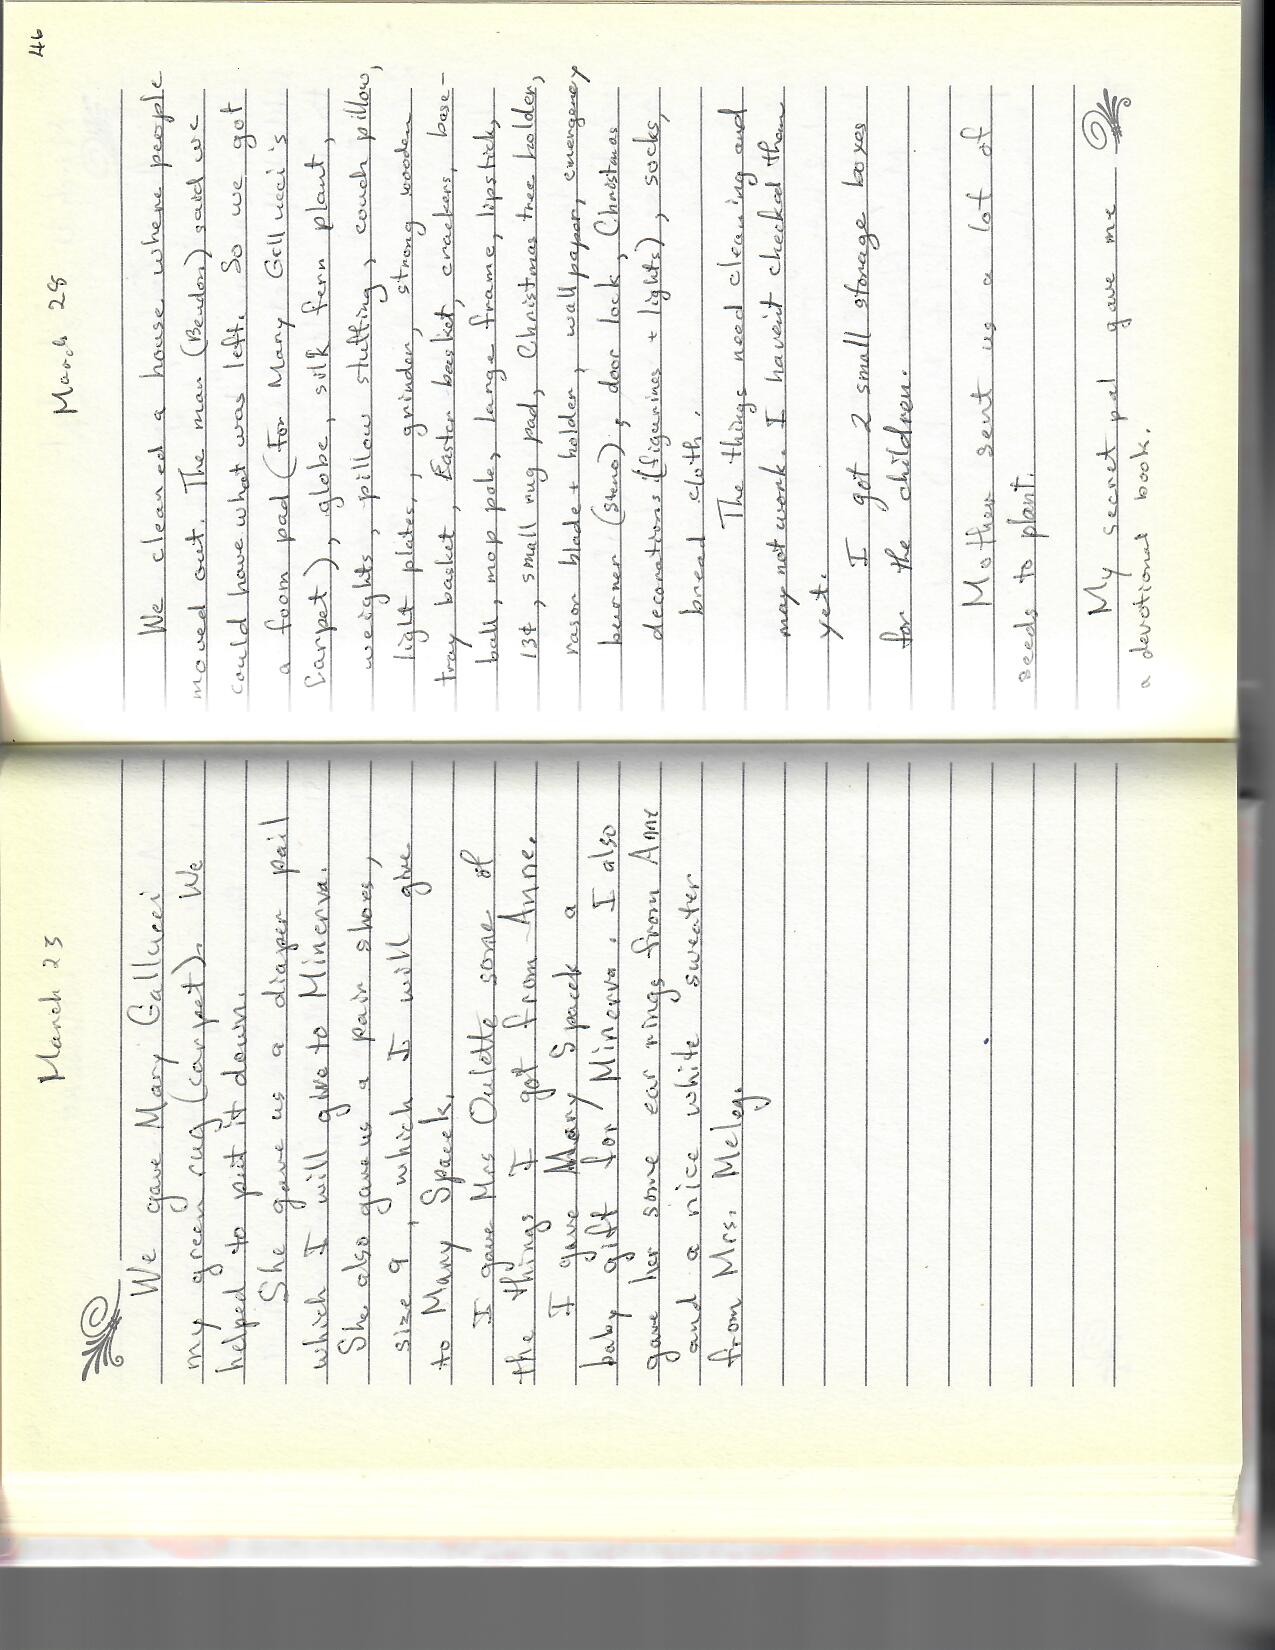 March 23
We gave Mary Gallucci
my green rug (carpet). We
helped to put it down.
She gave us a diaper pail
which I will give to Minerva.
She also gave us a pair shoes,
size 9, which I will give
to Mary Spacek.
I gave Mrs Oulette some of
the things I got from Anne.
I gave Mary Spacek a
baby gift for Minerva. I also
gave her some ear rings from Anne
and a nice white sweater
from Mrs. Meleg.
46
March 28
We cleaned a house where people
moved out. The man (Bendon) said we
could have what was left. So we got
a foom pad (for Mary Gallucci's
carpet), globe, silk fern plant,
weights, pillow stuffing, couch pillow,
light plates, grinder, strong wooden
tray basket, Easter basket, crackers, base-
ball, mop pole, large frame, lipstick,
13¢, small rug pad, Christmas tree holder,
rasor blade + holder, wall paper, emergency
beurner (steno), door lock, Christmas
decorations (figurines + lights), socks,
bread cloth.
The things need cleaning and
may not work. I havent checked them
yet.
I got 2 small storage boxes
for the children.
Mother sent us a lot of
seeds to plant.
My secret pal gave me
a devotional book.